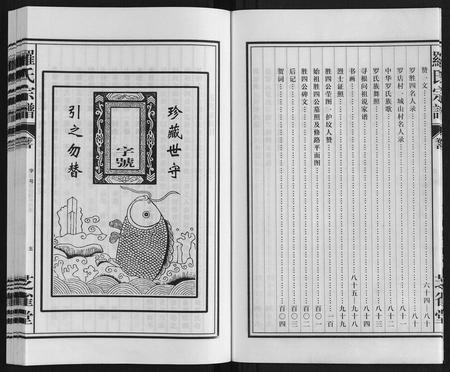 羅氏宗譜
卷首
芝雀堂
赞一文……六十四
罗胜四名人录……八十
罗店村、城山村名人录……八十一
中华罗氏族歌……八十二
罗氏族舞照……八十三
寻根问祖说家谱……八十四
书画……八十五
烈士证照……九十八
胜四公茔图一护坟人赞……九十九
始祖胜四公墓照及修路平面图……一百
胜四公碑文……百〇一
后记……百〇三
贺词……百〇四
羅氏宗譜
字号
五
芝雀堂
珍藏世守
字號
引之勿替